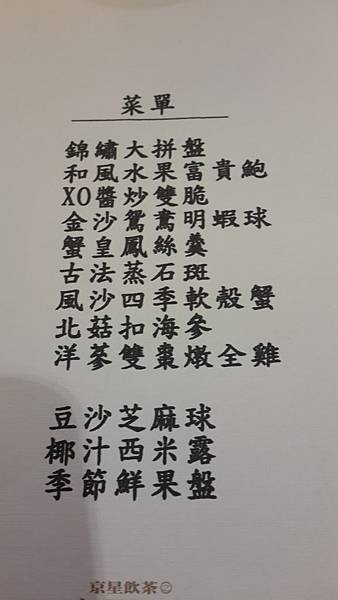 菜單
錦繡大拼盤
和風水果富貴鮑
XO醬炒雙脆
金沙鴛鴦明蝦球
蟹皇鳳絲羹
古法蒸石斑
風沙四季軟殼蟹
北菇扣海參
洋蔘雙棗燉全雞
豆沙芝麻球
椰汁西米露
季節鮮果盤
京星飲茶